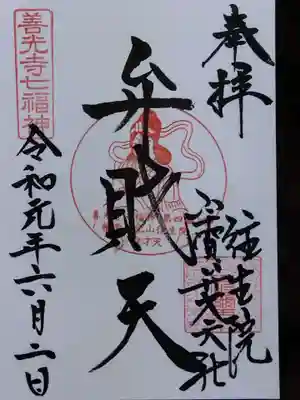 奉拝
往生院
弁財天
善光寺七福神
令和元年六月二日